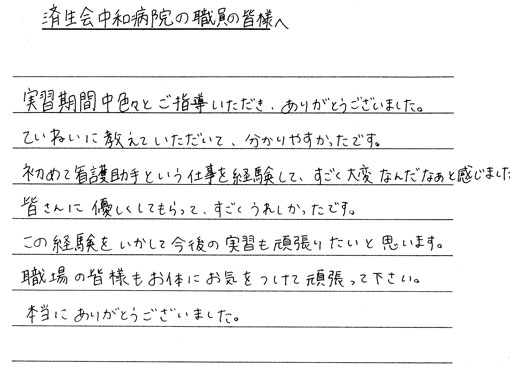 済生会中和病院の職員の皆様へ
実習期間中色々とご指導いただき、ありがとうございました。
ていねいに教えていただいて、分かりやすかったです。
初めて看護助手という仕事を経験して、すごく大変なんだなぁと感じました
皆さんに優しくしてもらって、すごくうれしかったです。
この経験をいかして今後の実習も頑張りたいと思います。
職場の皆様もお体にお気をつけて頑張って下さい。
本当にありがとうございました。